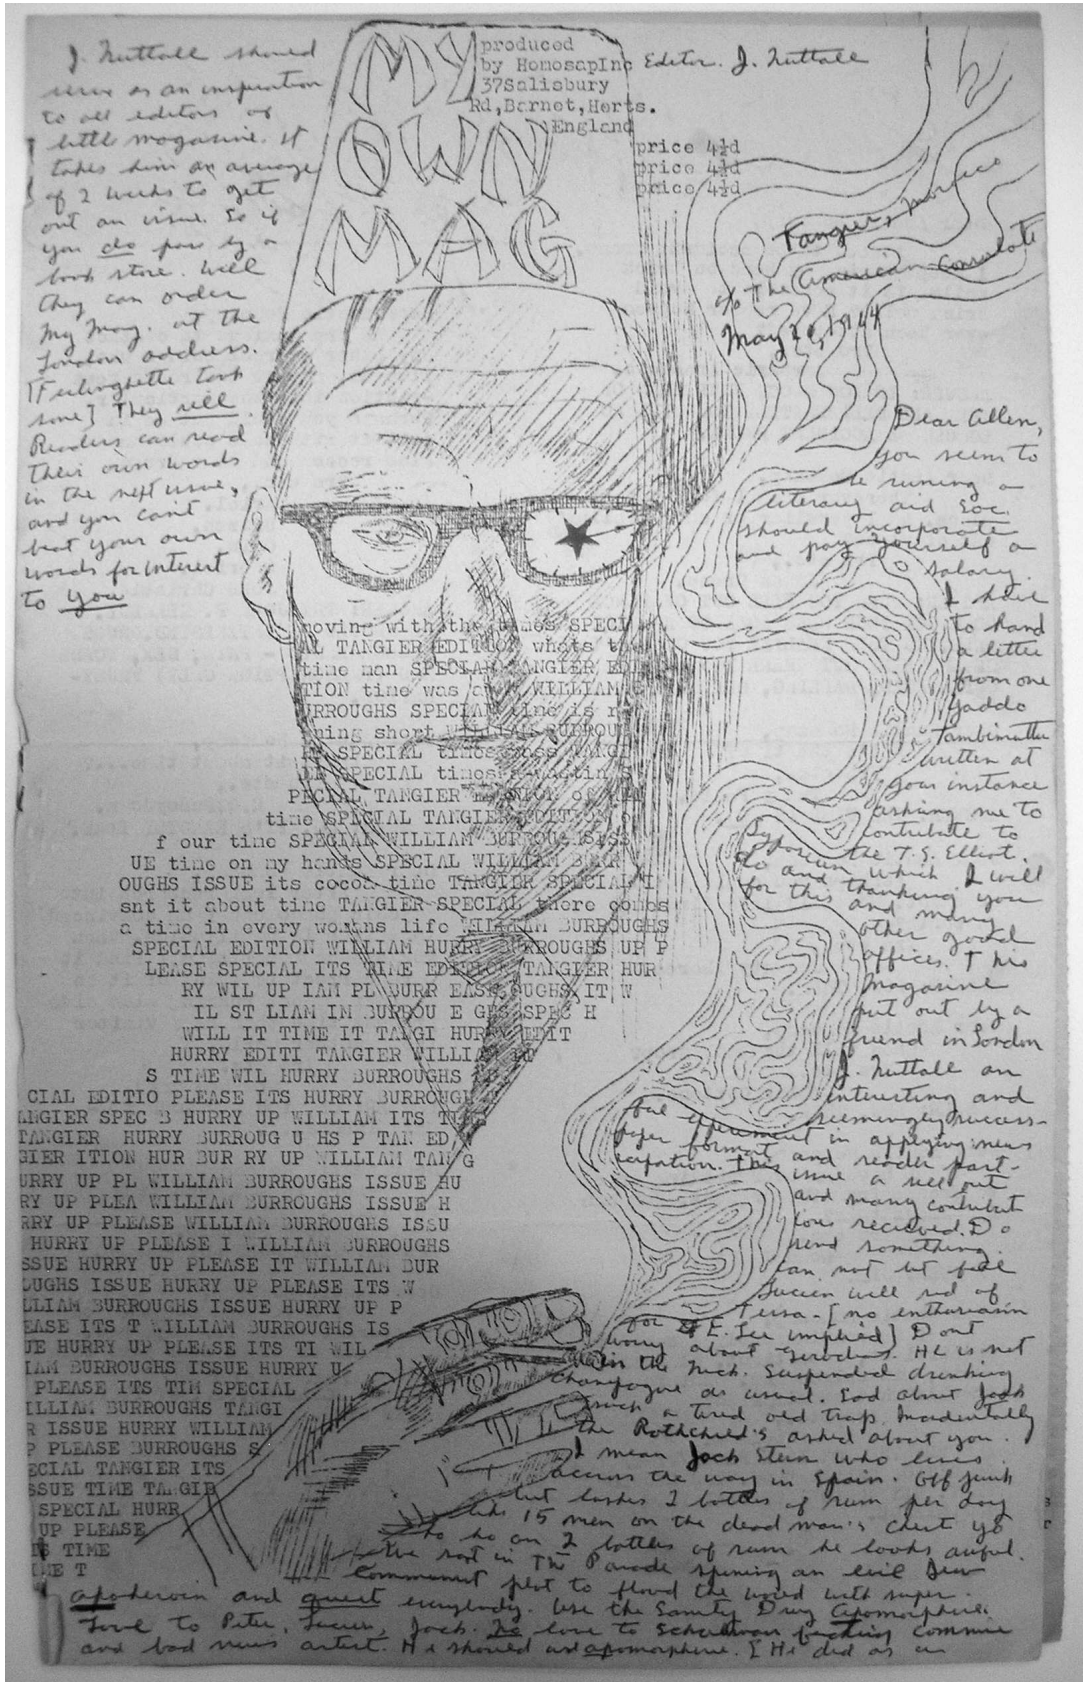 MY
OWN
MAG
produced
by HomosapInc
37Salisbury
Rd,Barnet,Herts.
England
Editor. J. Nuttall
price 4½d
price 4½d
price 4½d
J. Nuttall should
serve as an inspiration
to all editors of
little magazine. It
takes him an average
of 2 weeks to get
out an issue. So if
you do pass by a
book store. Will
they can order
My Mag. at the
London address.
[Ferlinghette took
some] They sell
Readers can read
their own words
in the next issue,
and you can't
beat your own
words for interest
to you
Tangier, Morocco
c/o The American Consulate
May 20, 1964
Dear Allen,
you seem to
be runing a
literary aid Soc.
should incorporate
and pay yourself a
salary.
I have
to hand
a letter
from one
Tambimuttu
written at
your instance
asking me to
contribute to
the T.S. Elliot.
Symposium which I will
do and thanking you
for this and many
other good
offices. This
magazine
put out by a
friend in London
J. Nuttall an
interesting and
seemingly success-
ful experiment in applying news
paper format and reader part-
icipation. This issue a sell out
and many contribut
ions recieved. Do
send something.
can not but feel
Lucien will rid of
Tessa. [no enthusiasm
for E. Lee implied] Dont
worry about He is not
in the nick. Suspended drinking
champagne as usual. Sad about Jack
such a tired old trap. Incidentally
the Rothchild's asked about you.
I mean Jack Stern who lives
across the way in Spain. Off junk
but lushes 2 bottles of rum per day
like 15 men on the dead man's chest yo
ho ho on 2 bottles of rum he looks awful.
We sat in The Parade spining an evil Jew
Communist plot to flood the world with super
apoheroin and everybody. Use the Sanity Drug apomorphine.
Love to Peter, Lucien, Jack. No love to commie
and bad news artist. He should and apomorphine. [He did as an
moving with the times SPECI
AL TANGIER EDITION whats th
time man SPECIAL TANGIER EDI
TION time was a WILLIAM
URROUGHS SPECIAL time is r
ning short WILLIAM BURROU
SPECIAL times TANGI
SPECIAL times a wastin S
PECIAL TANGIER EDITION of
time SPECIAL TANGIER EDITION o
f our time SPECIAL WILLIAM BURROUGHS ISS
UE time on my hands SPECIAL WILLIAM BURR
OUGHS ISSUE its cocoa time TANGIER SPECIAL I
snt it about time TANGIER SPECIAL there comes
a time in every womans life WILLIAM BURROUGHS
SPECIAL EDITION WILLIAM HURRY BURROUGHS UP P
LEASE SPECIAL ITS TIME EDITION TANGIER HUR
RY WIL UP IAM PL BURR EASE OUGHS IT W
IL ST LIAM IM BURROU E GHS SPEC H
WILL IT TIME IT TANGI HURRY EDIT
HURRY EDITI TANGIER WILLIAM ED
S TIME WIL HURRY BURROUGHS
CIAL EDITIO PLEASE ITS HURRY BURROUGH
ANGIER SPEC B HURRY UP WILLIAM ITS TIME
TANGIER HURRY BURROUG U HS P TAN ED
GIER ITION HUR BUR RY UP WILLIAM TAN G
URRY UP PL WILLIAM BURROUGHS ISSUE HU
RY UP PLEA WILLIAM BURROUGHS ISSUE H
RRY UP PLEASE WILLIAM BURROUGHS ISSU
HURRY UP PLEASE I WILLIAM BURROUGHS
SSUE HURRY UP PLEASE IT WILLIAM BUR
OUGHS ISSUE HURRY UP PLEASE ITS W
LLIAM BURROUGHS ISSUE HURRY UP P
EASE ITS T WILLIAM BURROUGHS IS
UE HURRY UP PLEASE ITS TI WIL
IAM BURROUGHS ISSUE HURRY U
PLEASE ITS TIM SPECIAL
ILLIAM BURROUGHS TANGI
R ISSUE HURRY WILLIAM
P PLEASE BURROUGHS S
ECIAL TANGIER ITS
SSUE TIME TANGIE
SPECIAL HURR
UP PLEASE
TS TIME
IME T